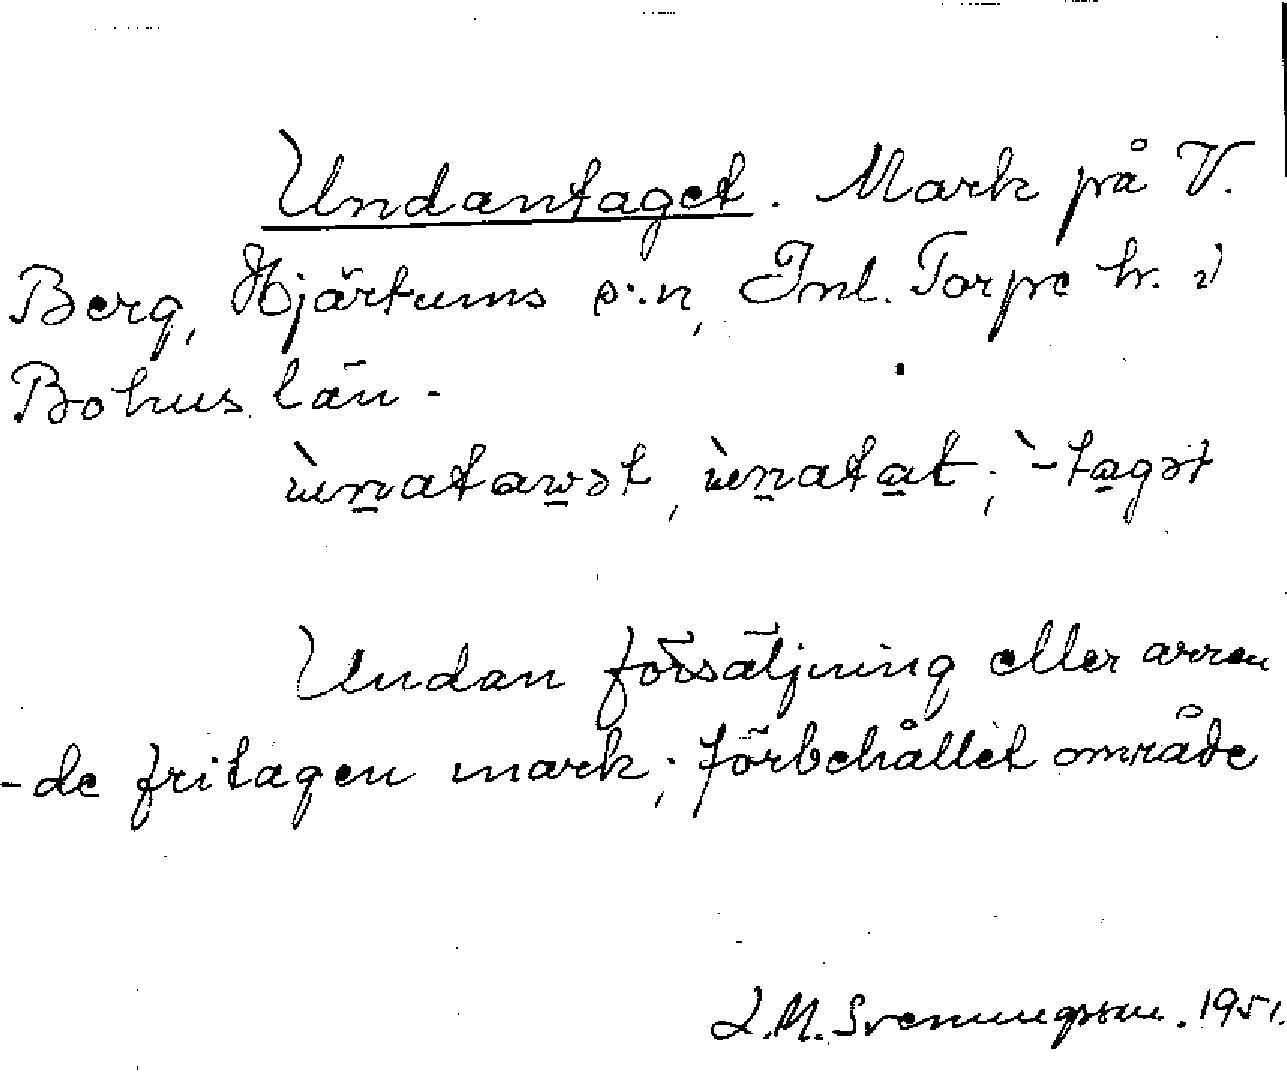 Undantaget. Mark på V.
Berg, Hjärtums s:n, Inl. Torpe hr. i
Bohus län.
ùn̲ataw̲ət, ùn̲ata̲t; `-ta̲gət
Undan försäljning eller arren
-de fritagen mark; förbehållet område
L.M. Svenungsson. 1951.